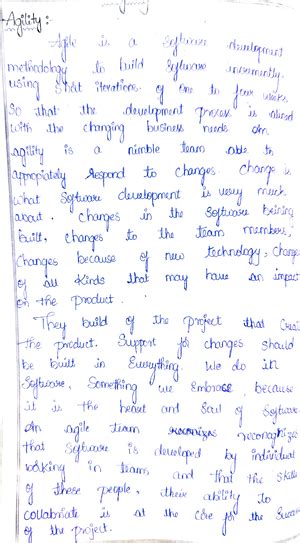 Agility :-
Agile is a software development
methodology to build software incremently
using short iterations of one to four weeks
So that the development process is alined
with the changing business needs An
agility is a nimble team able to
appropiately respond to changes. change is
what Software development is very much
about. changes in the software being
built, changes to the team members,
changes because of new technology, changes
of all kinds that may have an impact
on the product.
They build of the project that Creat
the product. Support for changes should
be built in Everything. We do in
Software, Something we Embrace because
it is the heart and Soul of Software
An agile team recongnizes
that Software is developed by individual
working in teams and that the skills
of these people, their ability to
collabriate is at the core for the Success
of the project.